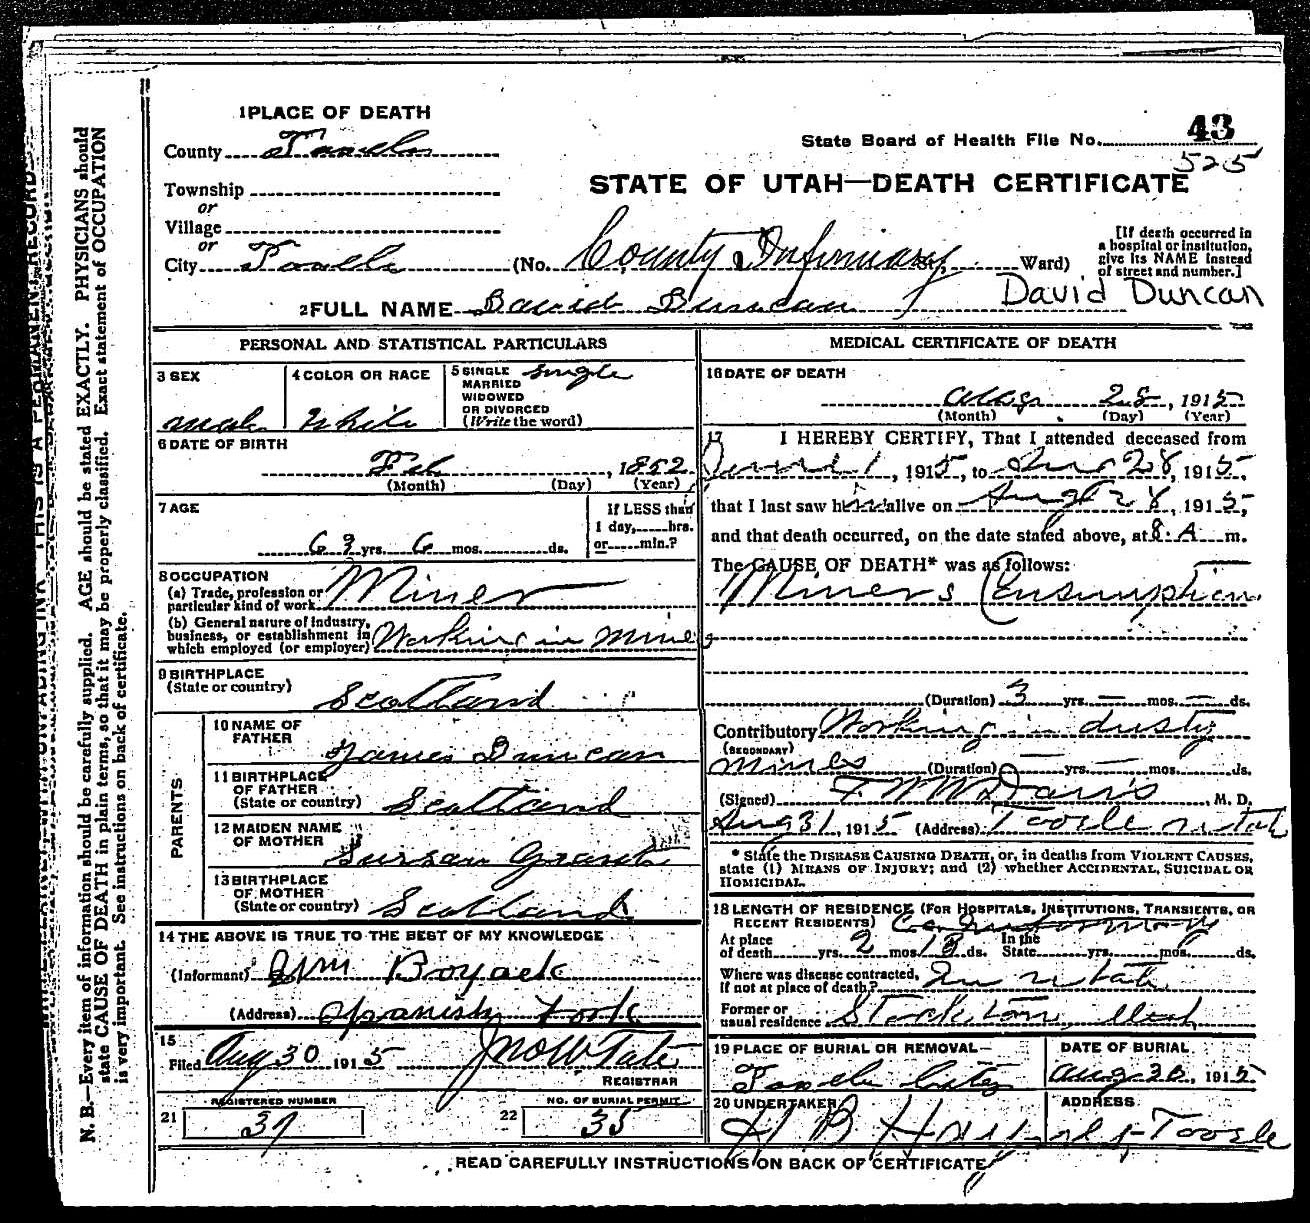 1 PLACE OF DEATH
County Tooele
Township
or
Village
or
City Tooele (No. County Infirmary St. Ward)
State Board of Health File No. 43
525
STATE OF UTAH—DEATH CERTIFICATE
[If death occurred in
a hospital or institution,
give its NAME instead
of street and number.]
2 FULL NAME David Duncan
David Duncan
PERSONAL AND STATISTICAL PARTICULARS
3 SEX
male
4 COLOR OR RACE
White
5 SINGLE
MARRIED
WIDOWED
OR DIVORCED
(Write the word)
single
6 DATE OF BIRTH
Feb , 1852
(Month) (Day) (Year)
7 AGE
63 yrs. 6 mos. ds.
If LESS than
1 day, hrs.
or min.?
8 OCCUPATION
(a) Trade, profession or
particular kind of work Miner
(b) General nature of industry,
business, or establishment in
which employed (or employer) Working in Mines
9 BIRTHPLACE
(State or country) Scotland
PARENTS
10 NAME OF
FATHER
James Duncan
11 BIRTHPLACE
OF FATHER
(State or country) Scotland
12 MAIDEN NAME
OF MOTHER
Sursan Grant
13 BIRTHPLACE
OF MOTHER
(State or country) Scotland
14 THE ABOVE IS TRUE TO THE BEST OF MY KNOWLEDGE
(Informant) Wm Boyack
(Address) Spanish Fork
15
Filed Aug 30 1915 Jno W Tate
REGISTRAR
21 REGISTERED NUMBER
37
22 NO. OF BURIAL PERMIT
35
MEDICAL CERTIFICATE OF DEATH
16 DATE OF DEATH
Aug 28, 1915
(Month) (Day) (Year)
17 I HEREBY CERTIFY, That I attended deceased from
June 1, 1915, to Aug 28, 1915,
that I last saw him alive on Aug 28, 1915,
and that death occurred, on the date stated above, at 8. A m.
The CAUSE OF DEATH* was as follows:
Miners Consumption
(Duration) 3 yrs. — mos. — ds.
Contributory Working in dusty
(SECONDARY)
mines (Duration) yrs. — mos. ds.
(Signed) F M Davis, M. D.
Aug 31, 1915 (Address) Tooele Utah
* State the DISEASE CAUSING DEATH, or, in deaths from VIOLENT CAUSES,
state (1) MEANS OF INJURY; and (2) whether ACCIDENTAL, SUICIDAL OR
HOMICIDAL.
18 LENGTH OF RESIDENCE (FOR HOSPITALS, INSTITUTIONS, TRANSIENTS, OR
RECENT RESIDENTS) Co Infirmary
At place
of death yrs. 2 mos. 18 ds. In the
State yrs. mos. ds.
Where was disease contracted,
If not at place of death? In Utah
Former or
usual residence Stockton, Utah
19 PLACE OF BURIAL OR REMOVAL
Tooele City
DATE OF BURIAL
Aug 30, 1915
20 UNDERTAKER
ADDRESS
Tooele
READ CAREFULLY INSTRUCTIONS ON BACK OF CERTIFICATE
N. B.—Every item of information should be carefully supplied. AGE should be stated EXACTLY. PHYSICIANS should
state CAUSE OF DEATH in plain terms, so that it may be properly classified. Exact statement of OCCUPATION
is very important. See instructions on back of certificate.